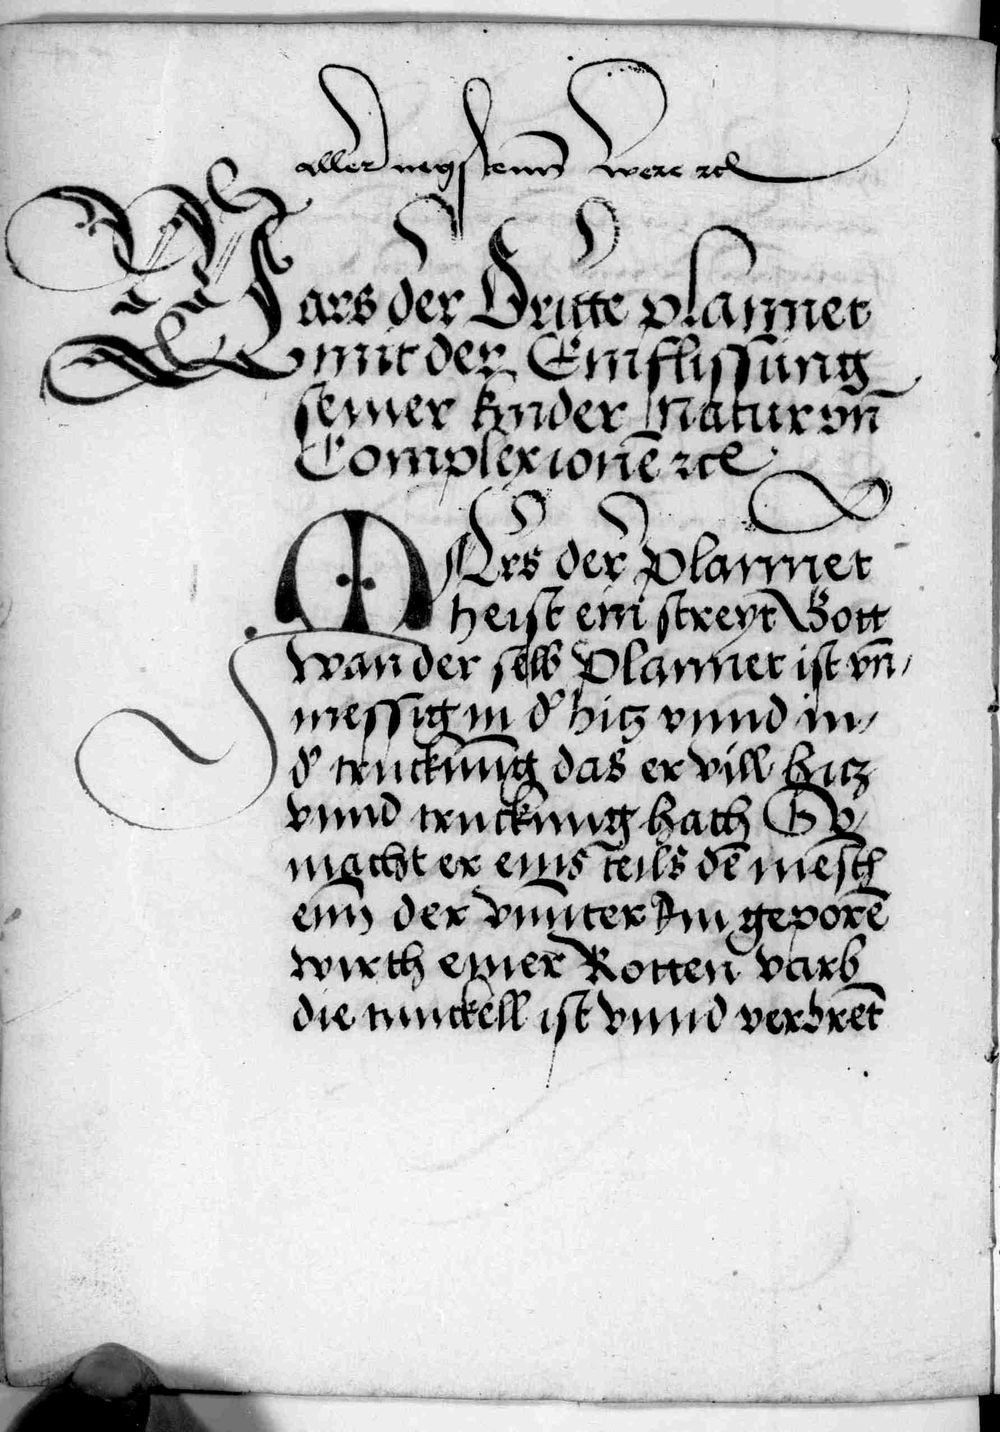 aller negstenn were ꝛcꝛ
Mars der Dritte plannet
mit der Einflissūng
seiner kinder Natur vn̄
Complexionē ꝛcꝛ
MArs der plannet
heist ein streyt Gott
wan der selb plannet ist vn̄/
messig in d' hitz vnnd in/
d' truckūng das er vill hitz
vnnd truckūng hath So/
macht er eins teils dē mēsch
enn der vnnter Im geporē
wirth einer Rotten varb
die tunckell ist vnnd verbrēt